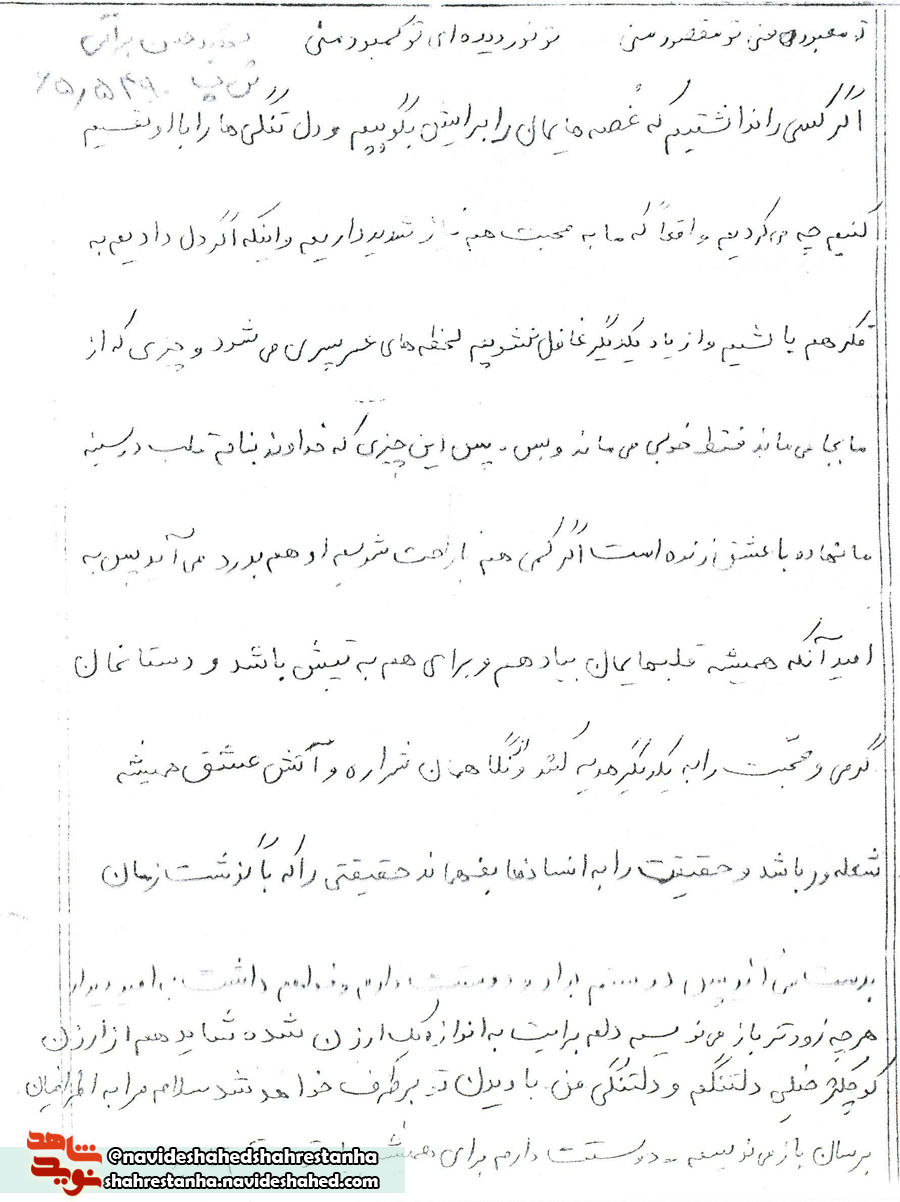 تو معبود منی تو مقصود منی تو نور دیده ای تو کمبود منی
اگر کسی را نداشتیم که غصه هایمان را برایش بگوییم و دل تنگی ها را با او تقسیم
کنیم چه می کردیم واقعاً که ما به محبت هم نیاز شدید داریم و اینکه اگر دل دادیم به
فکر هم باشیم و از یاد یکدیگر غافل نشویم لحظه های عمر سپری می شود و چیزی که از
ما بجا می ماند فقط خوبی می ماند و بس. پس این چیزی که خداوند بنام قلب در سینه
ما نهاده با عشق زنده است اگر کمی هم ناراحت شویم او هم بدرد می آید پس به
امید آنکه همیشه قلبهایمان بیاد هم و برای هم به تپش باشد و دستانمان
گرمی و محبت را به یکدیگر هدیه کند و نگاهمان شراره و آتش عشق همیشه
شعله ور باشد و حقیقت را به انسانها بفهماند حقیقتی را که با گذشت زمان
بدست می آید پس دوستم بدار و دوستت دارم و خواهم داشت به امید دیدار
هر چه زودتر باز می نویسم دلم برایت به اندازه یک ارزن شده شاید هم از ارزن
کوچکتر خیلی دلتنگم و دلتنگی من با دیدن تو برطرف خواهد شد سلام مرا به اطرافیان
برسان باز می نویسم دوستت دارم برای همیشه
شاهد نوید
@navideshahedshahrestanha
shahrestanha.navideshahed.com